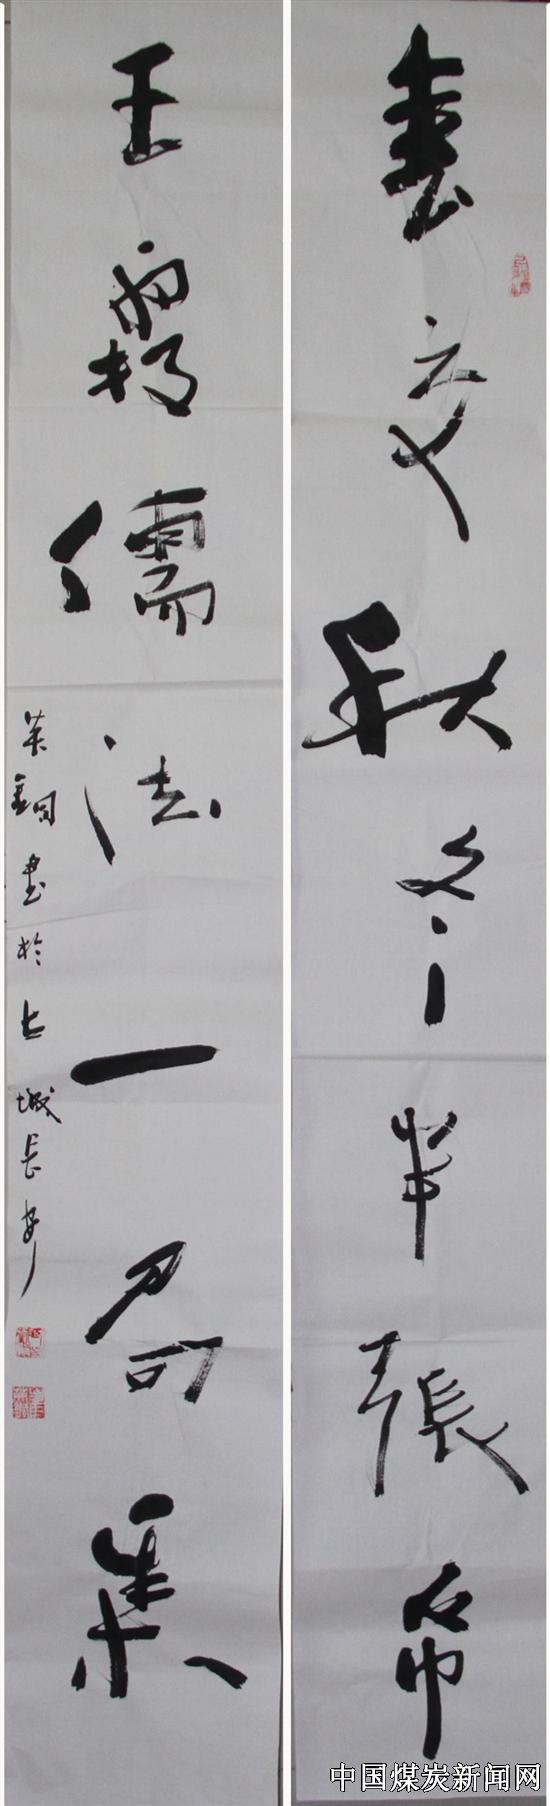 春夏秋冬半張帋
王霸儒法一局棊
英銅書於古城長安
中国煤炭新闻网